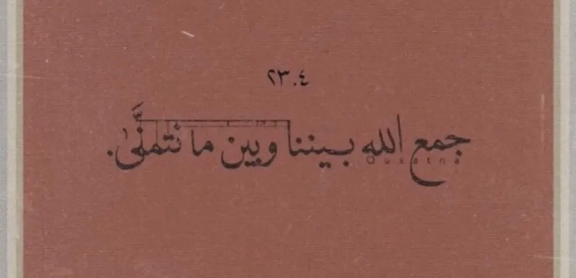 ٢٣٠٤
جمع الله بيننا وبين ما نتمنَّى.
Qusatna